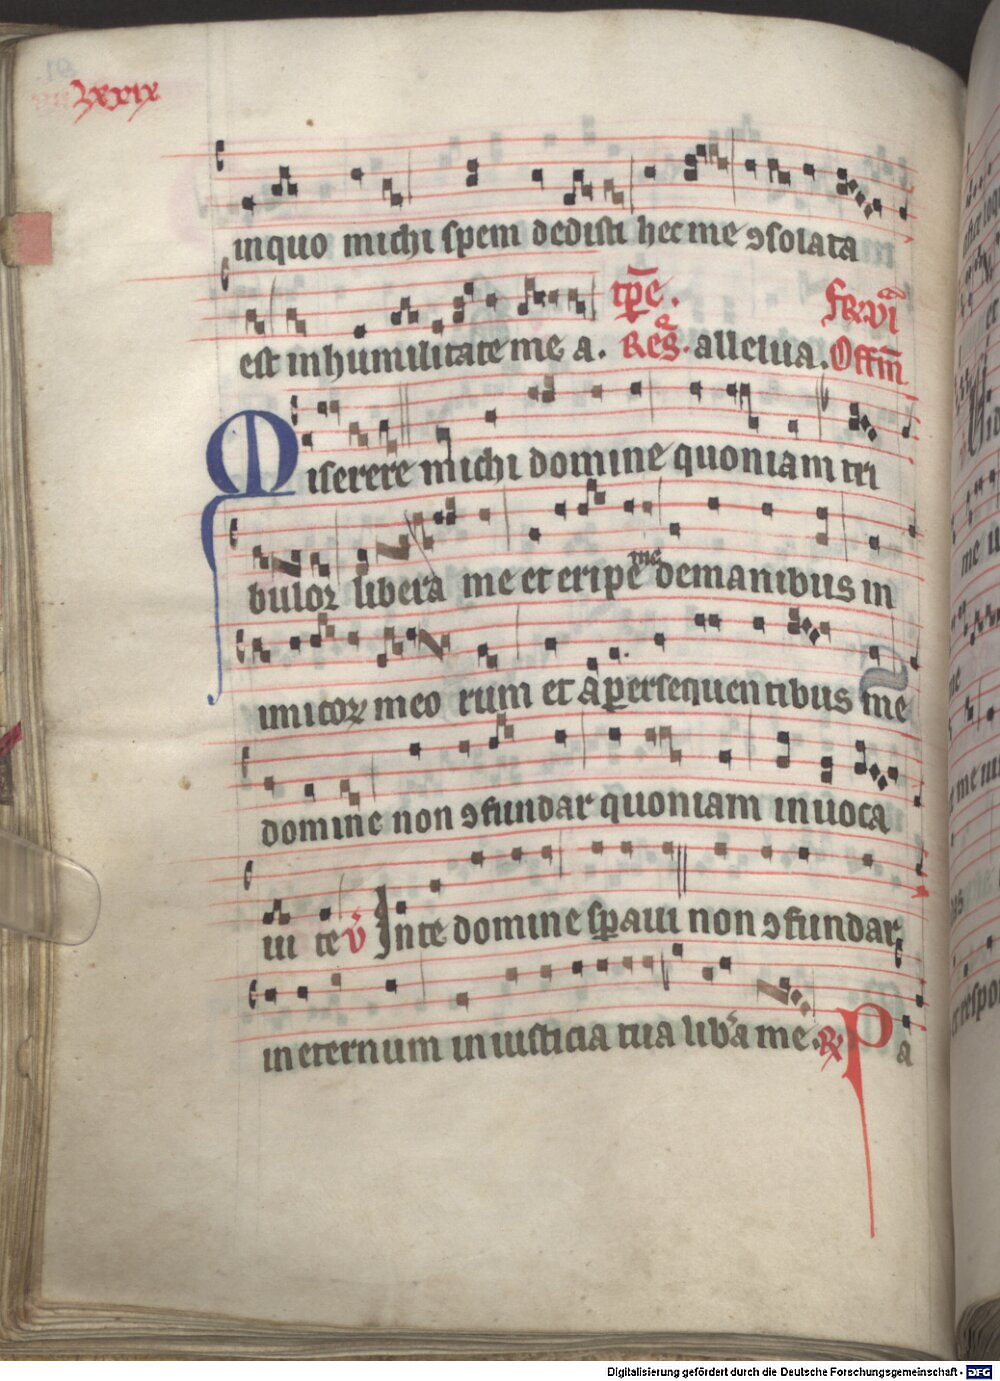 lxxxix
in quo michi spem dedisti hec me ꝯsolata
tp̄e. fer vi
est in humilitate me a. Res. alleluia. Offm̄
Miserere michi domine quoniam tri
bulor libera me et eripe me de manibus in
imicoꝝ meo rum et a ꝑsequentibus me
domine non ꝯfundar quoniam inuoca
ui te v̄ In te domine spaui non ꝯfundar
in eternum in iusticia tua liba me. ℞ Pa
Digitalisierung gefördert durch die Deutsche Forschungsgemeinschaft - DFG